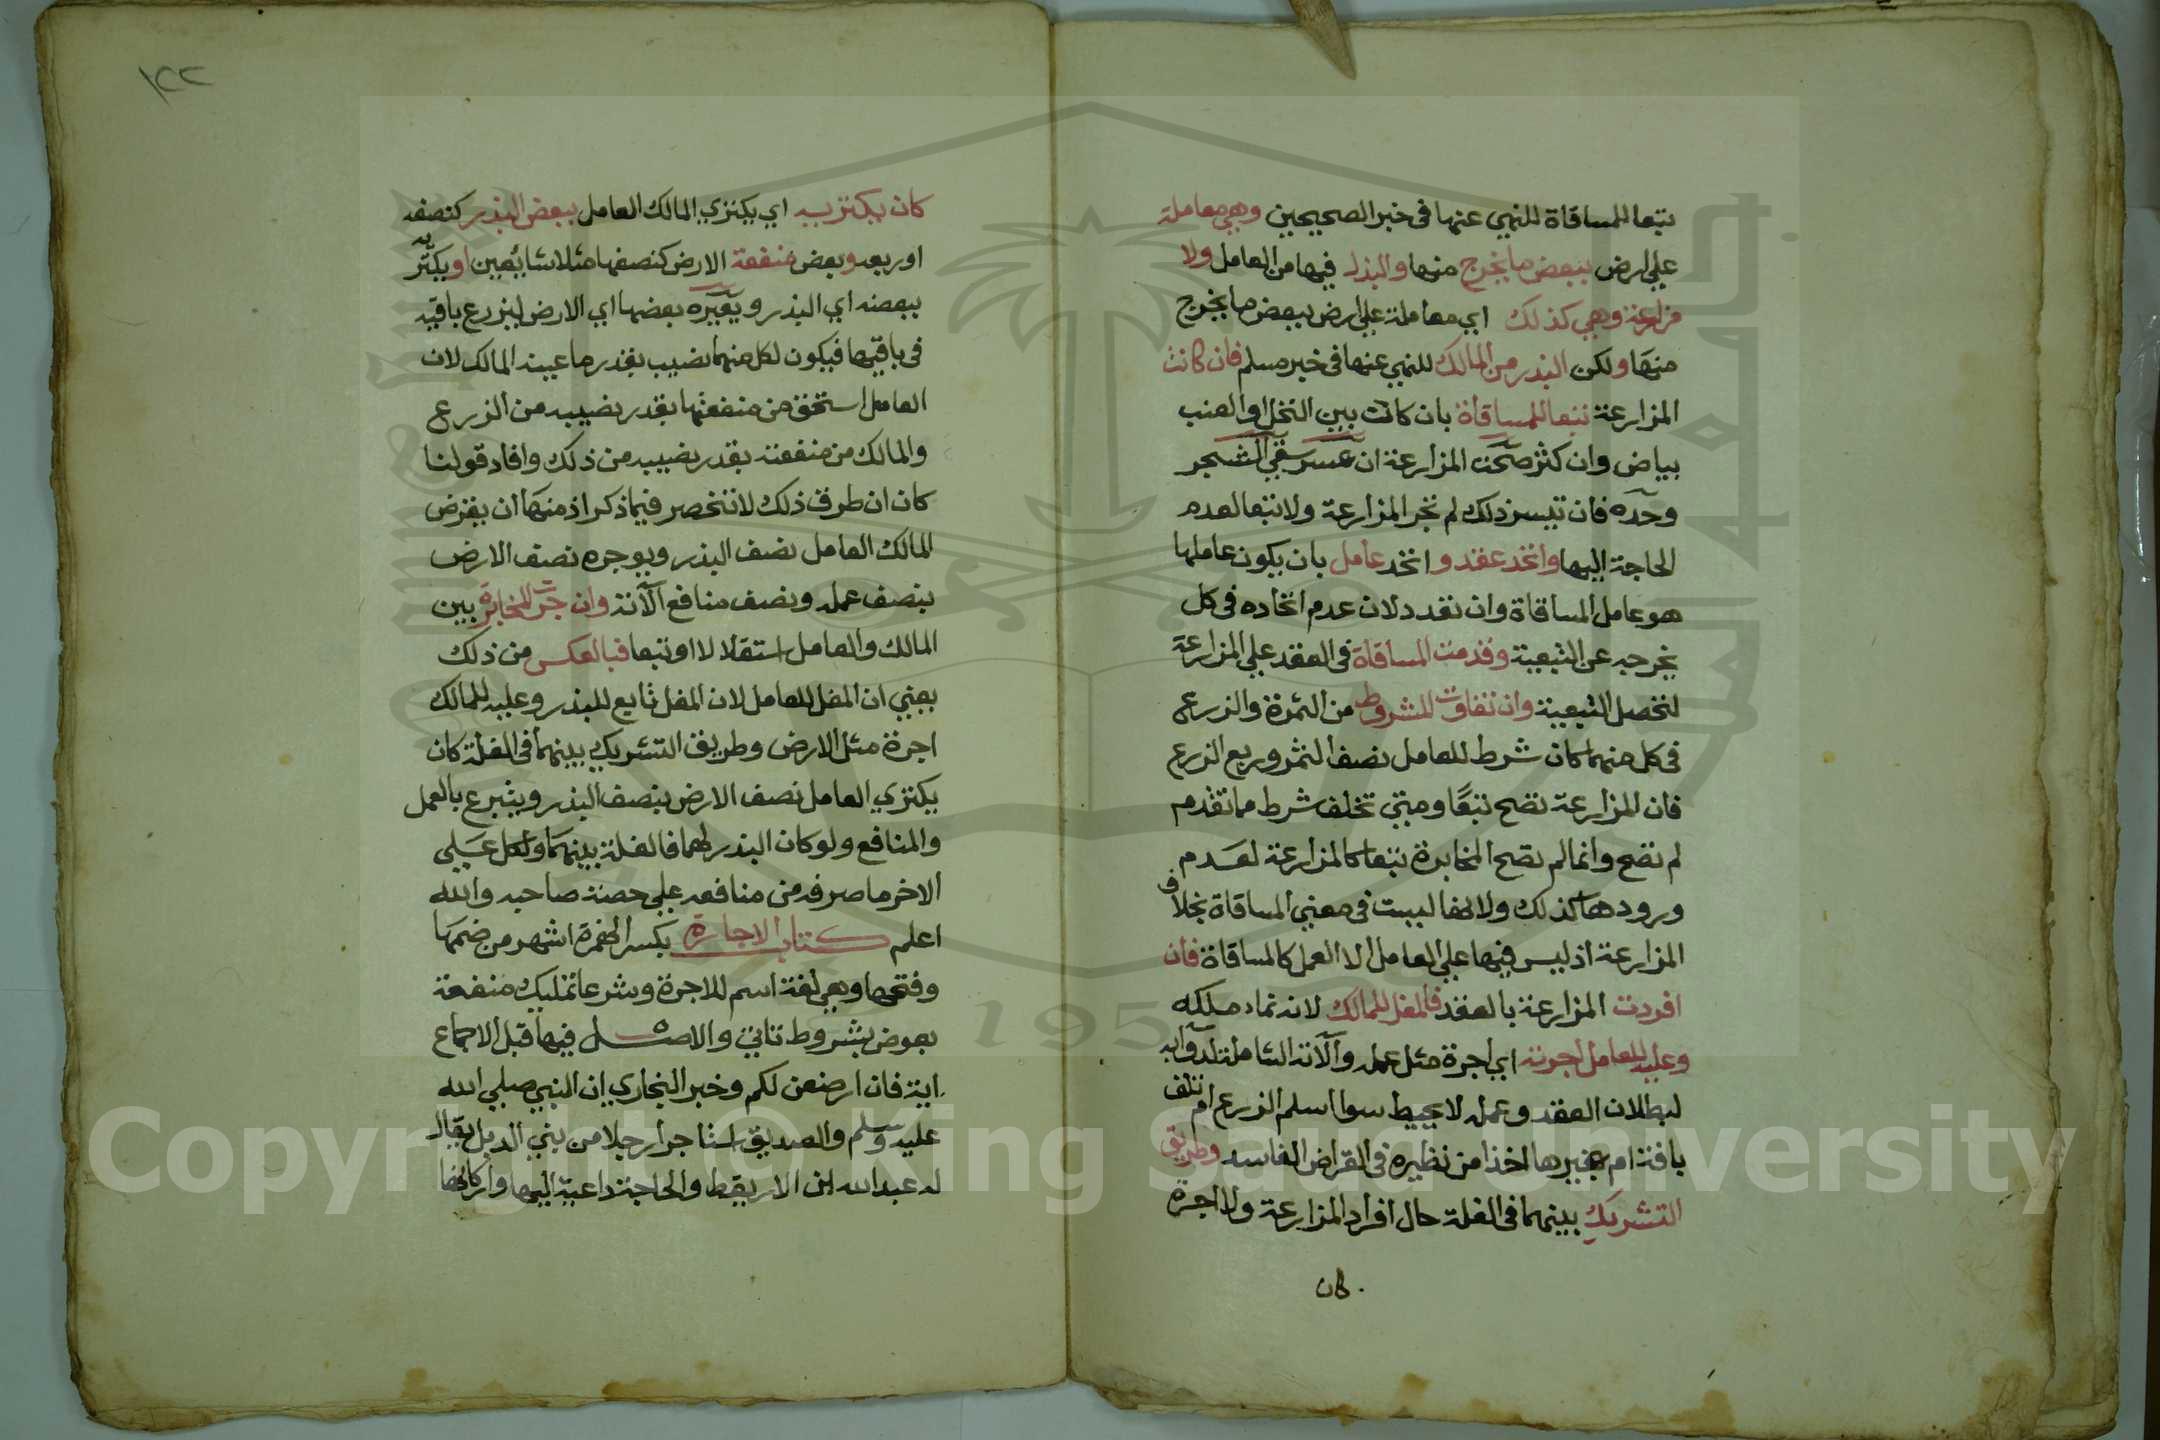 تبعا للمساقاة للنهي عنها في خبر الصحيحين وهي معاملة
علي ارض ببعض ما يخرج منها والبذر فيها من العامل ولا
مزارعة وهي كذلك اي معاملة علي ارض ببعض ما يخرج
منها ولكن البذر من المالك للنهي عنها في خبر مسلم فان كانت
المزارعة تبعا للمساقاة بان كانت بين النخل او العنب
بياض وان كثر صحت المزارعة ان عسر سقي الشجر
وحده فان تيسر ذلك لم تجز المزارعة ولا تبعا لعدم
الحاجة اليها واتحد عقد و اتحد عامل بان يكون عاملها
هو عامل المساقاة وان تعدد لان عدم اتحاده في كل
يخرجه عن التبعية وقدمت المساقاة في العقد علي المزارعة
لتحصل التبعية وان تفاوت المشروط من الثمرة والزرع
في كل منهما كان شرط للعامل نصف الثمر وربع الزرع
فان المزارعة تصح تبعا ومتي تخلف شرط مما تقدم
لم تصح وانما لم تصح المخابرة تبعا كالمزارعة لعدم
ورودها كذلك ولانها ليست في معني المساقاة بخلاف
المزارعة اذ ليس فيها علي العامل الا العمل كالمساقاة فان
افردت المزارعة بالعقد فالمغل للمالك لانه نماء ملكه
وعليه للعامل اجرته اي اجرة مثل عمله والآته الشاملة لدوابه
لبطلان العقد وعمله لا يحبط سوا اسلم الزرع ام تلف
بافة ام بغيرها اخذا من نظيره في القراض الفاسد وطريق
التشريك بينهما في الغلة حال افراد المزارعة ولا اجرة
كان
١٢٢
كان يكتريه اي يكتري المالك العامل ببعض البذر كنصفه
او ربعه وبعض منفعة الارض كنصفها مثلا شائعين او يكتريه
ببعضه اي البذر ويعيره بعضها اي الارض ليزرع باقيه
في باقيها فيكون لكل منهما نصيب بقدر ما عينه المالك لان
العامل استحق من منفعتها بقدر نصيبه من الزرع
والمالك من منفعته بقدر نصيبه من ذلك وافاد قولنا
كان ان طرق ذلك لا تنحصر فيما ذكر اذ منها ان يقرض
المالك العامل نصف البذر ويوجره نصف الارض
بنصف عمله ونصف منافع الآته وان جرت المخابرة بين
المالك والعامل استقلالا او تبعا فبالعكس من ذلك
يعني ان المغل للعامل لان المغل تابع للبذر وعليه للمالك
اجرة مثل الارض وطريق التشريك بينهما في الغلة كان
يكتري العامل نصف الارض بنصف البذر ويتبرع بالعمل
والمنافع ولو كان البذر لهما فالغلة بينهما ولكل علي
الاخر ما صرفه من منافعه علي حصة صاحبه والله
اعلم كتاب الاجارة بكسر الهمزة اشهر من ضمها
وفتحها وهي لغة اسم للاجرة وشرعا تمليك منفعة
بعوض بشروط تاتي والاصل فيها قبل الاجماع
اية فان ارضعن لكم وخبر البخاري ان النبي صلي الله
عليه وسلم والصديق استاجرا رجلا من بني الديل يقال
له عبد الله ابن الاريقط والحاجة داعية اليها واركانها
Copyright © King Saud University
1957